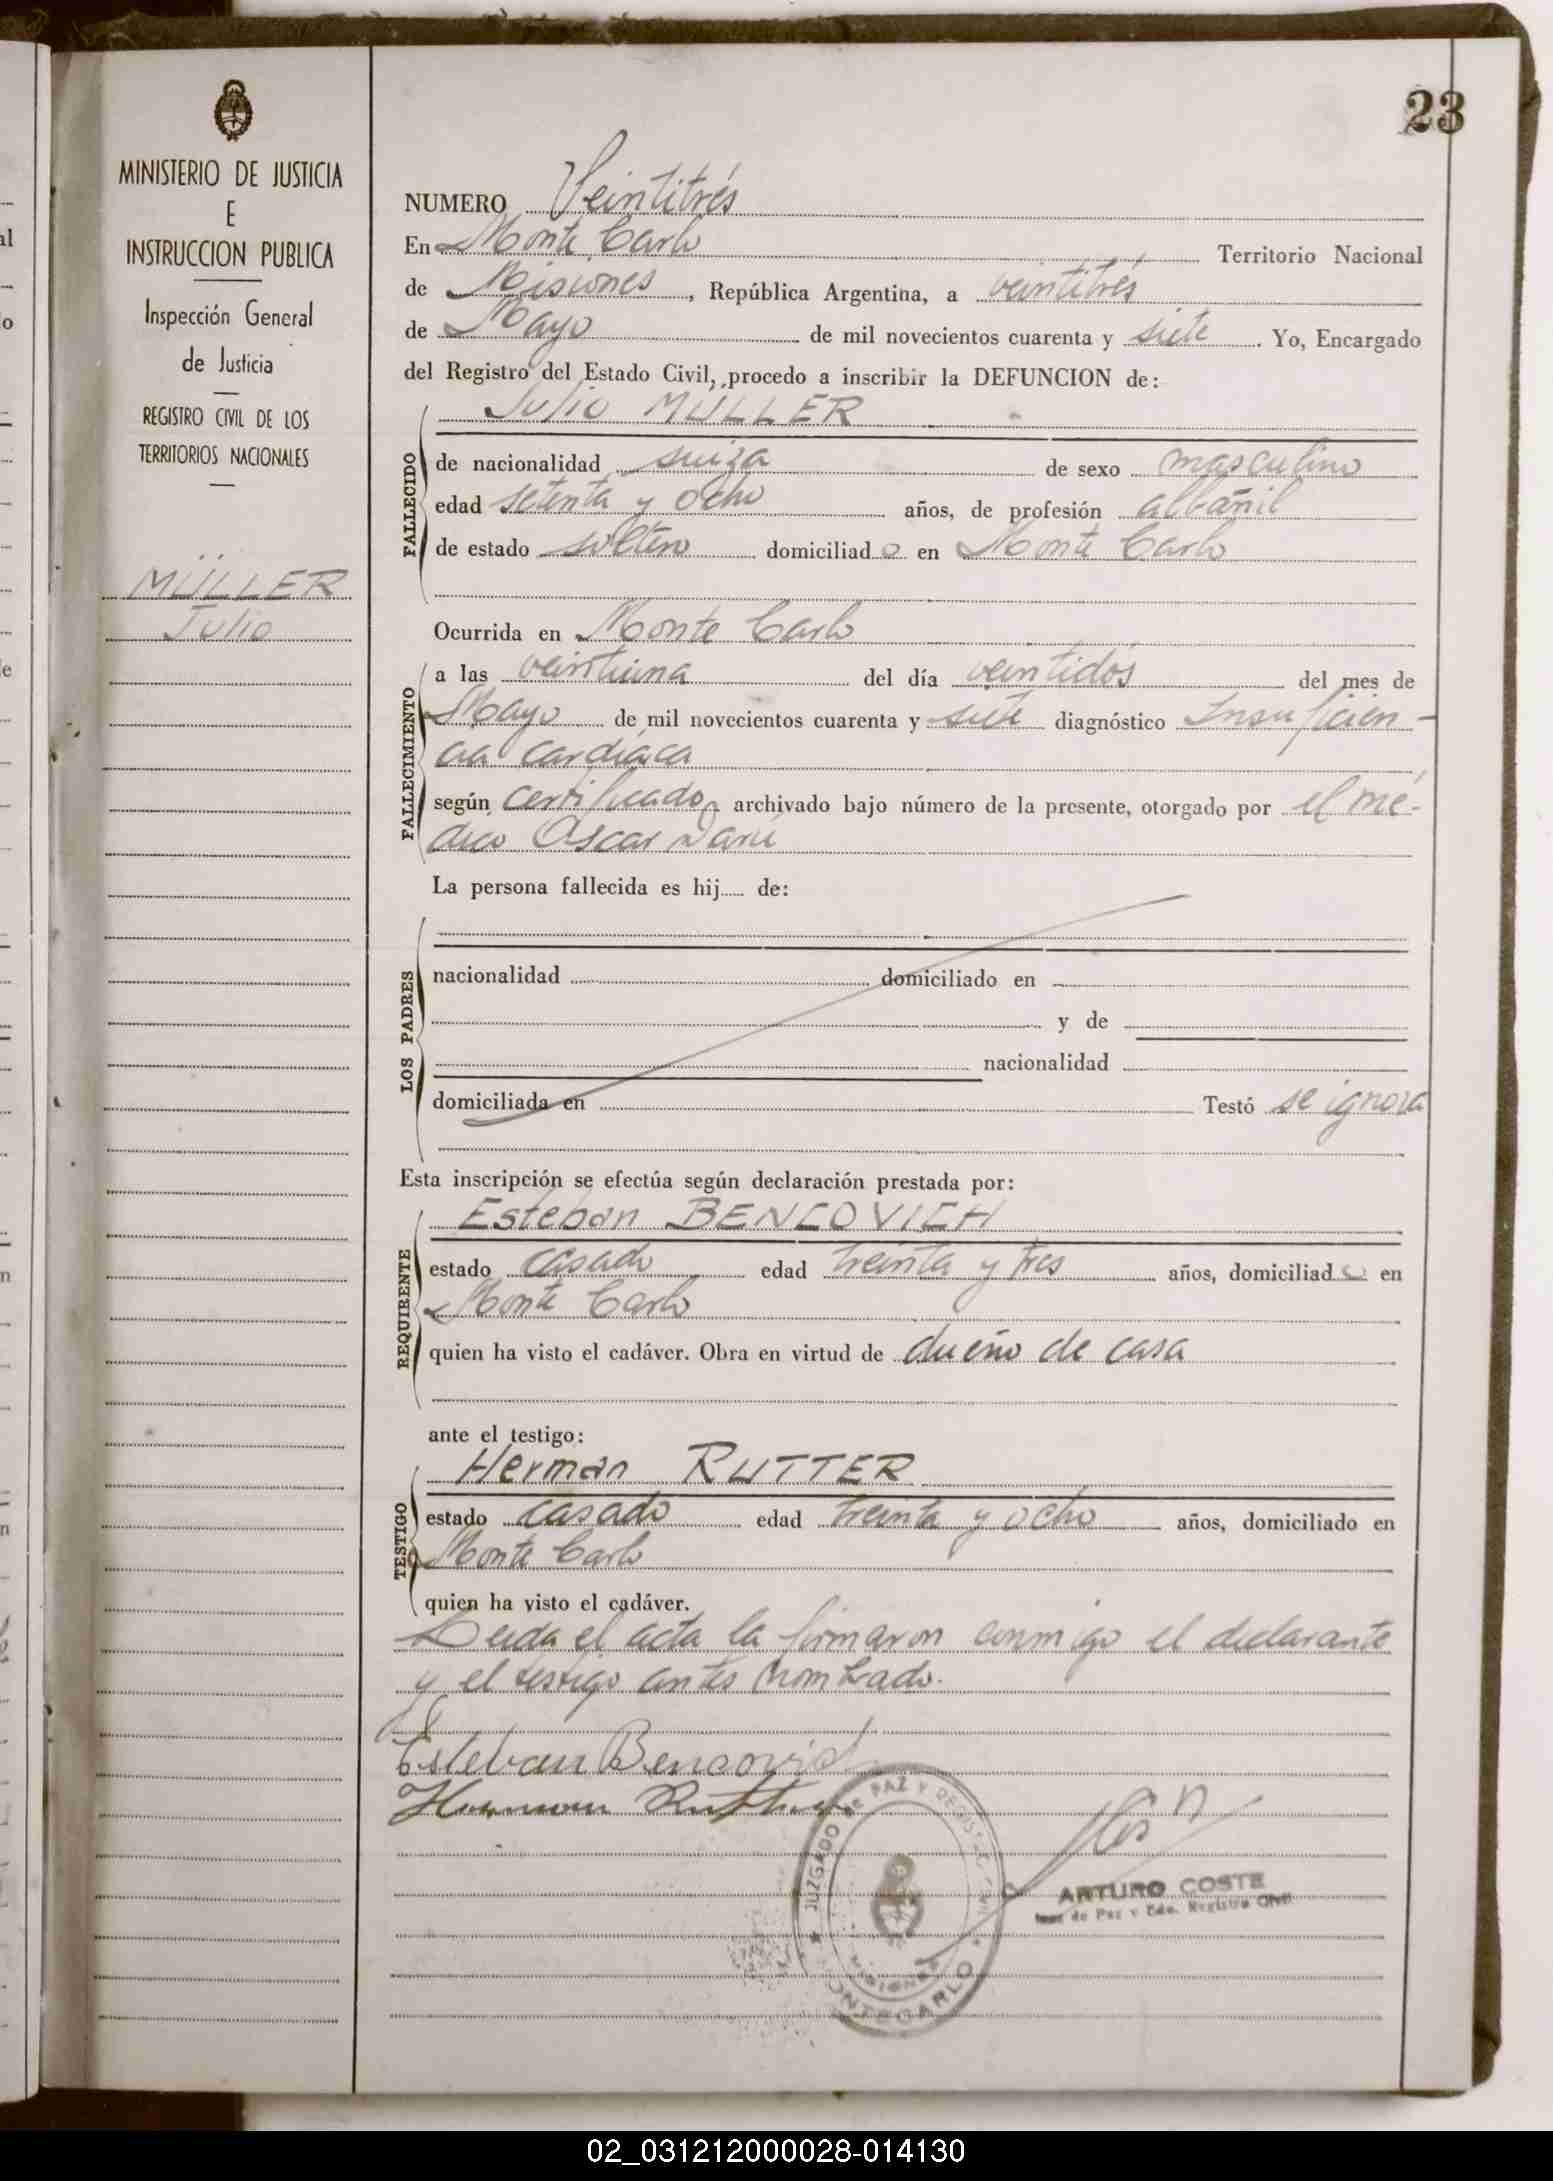 23
MINISTERIO DE JUSTICIA
E
INSTRUCCION PUBLICA
Inspección General
de Justicia
REGISTRO CIVIL DE LOS
TERRITORIOS NACIONALES
MÜLLER
Julio
NUMERO Veintitrés
En Monte Carlo Territorio Nacional
de Misiones, República Argentina, a veintitrés
de Mayo de mil novecientos cuarenta y siete. Yo, Encargado
del Registro del Estado Civil, procedo a inscribir la DEFUNCION de:
Julio MULLER
FALLECIDO
de nacionalidad suiza de sexo masculino
edad setenta y ocho años, de profesión albañil
de estado soltero domiciliado en Monte Carlo
Ocurrida en Monte Carlo
FALLECIMIENTO
a las veintiuna del día veintidós del mes de
Mayo de mil novecientos cuarenta y siete diagnóstico Insuficien-
cia cardíaca
según certificado archivado bajo número de la presente, otorgado por el mé-
dico Oscar Darú
La persona fallecida es hij de:
LOS PADRES
nacionalidad domiciliado en
y de
nacionalidad
domiciliada en Testó se ignora
Esta inscripción se efectúa según declaración prestada por:
Esteban BENCOVICH
REQUIRENTE
estado casado edad treinta y tres años, domiciliado en
Monte Carlo
quien ha visto el cadáver. Obra en virtud de dueño de casa
ante el testigo:
Herman RUTTER
TESTIGO
estado casado edad treinta y ocho años, domiciliado en
Monte Carlo
quien ha visto el cadáver.
Leida el acta la firmaron conmigo el declarante
y el testigo antes nombrado.
Esteban Bencovich
Herman Rutter
JUZGADO DE PAZ Y REGISTRO CIVIL
MISIONES
MONTECARLO
ARTURO COSTE
Juez de Paz y Edo. Registro Civil
02_031212000028-014130